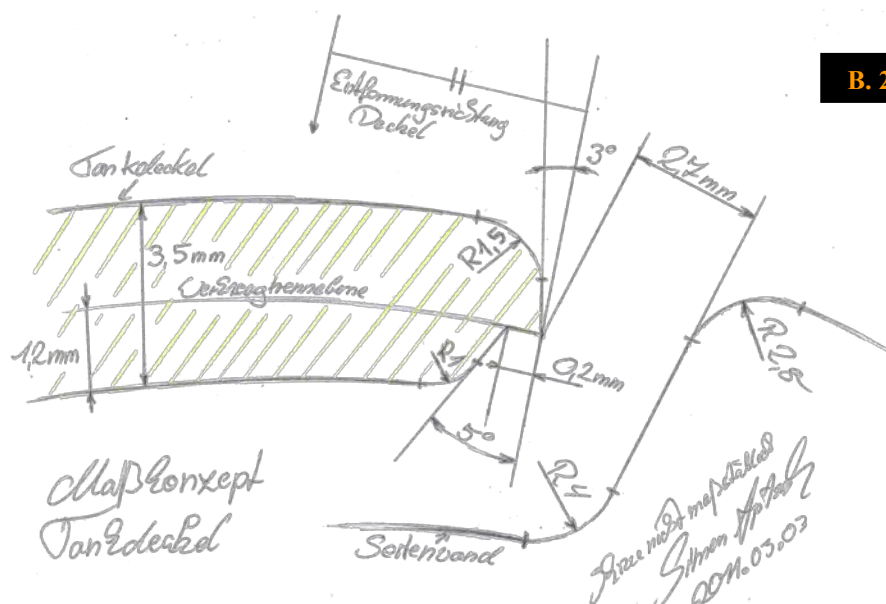 B. 2
Entformungsrichtung
Deckel
3°
2,7mm
Tankdeckel
3,5mm
R1,5
Werkzeugtrennebene
1,2mm
R1
0,2mm
R2,8
5°
R4
Maßkonzept
Tankdeckel
Seitenwand
Skizze nicht maßstäblich
Simon
2011.03.03